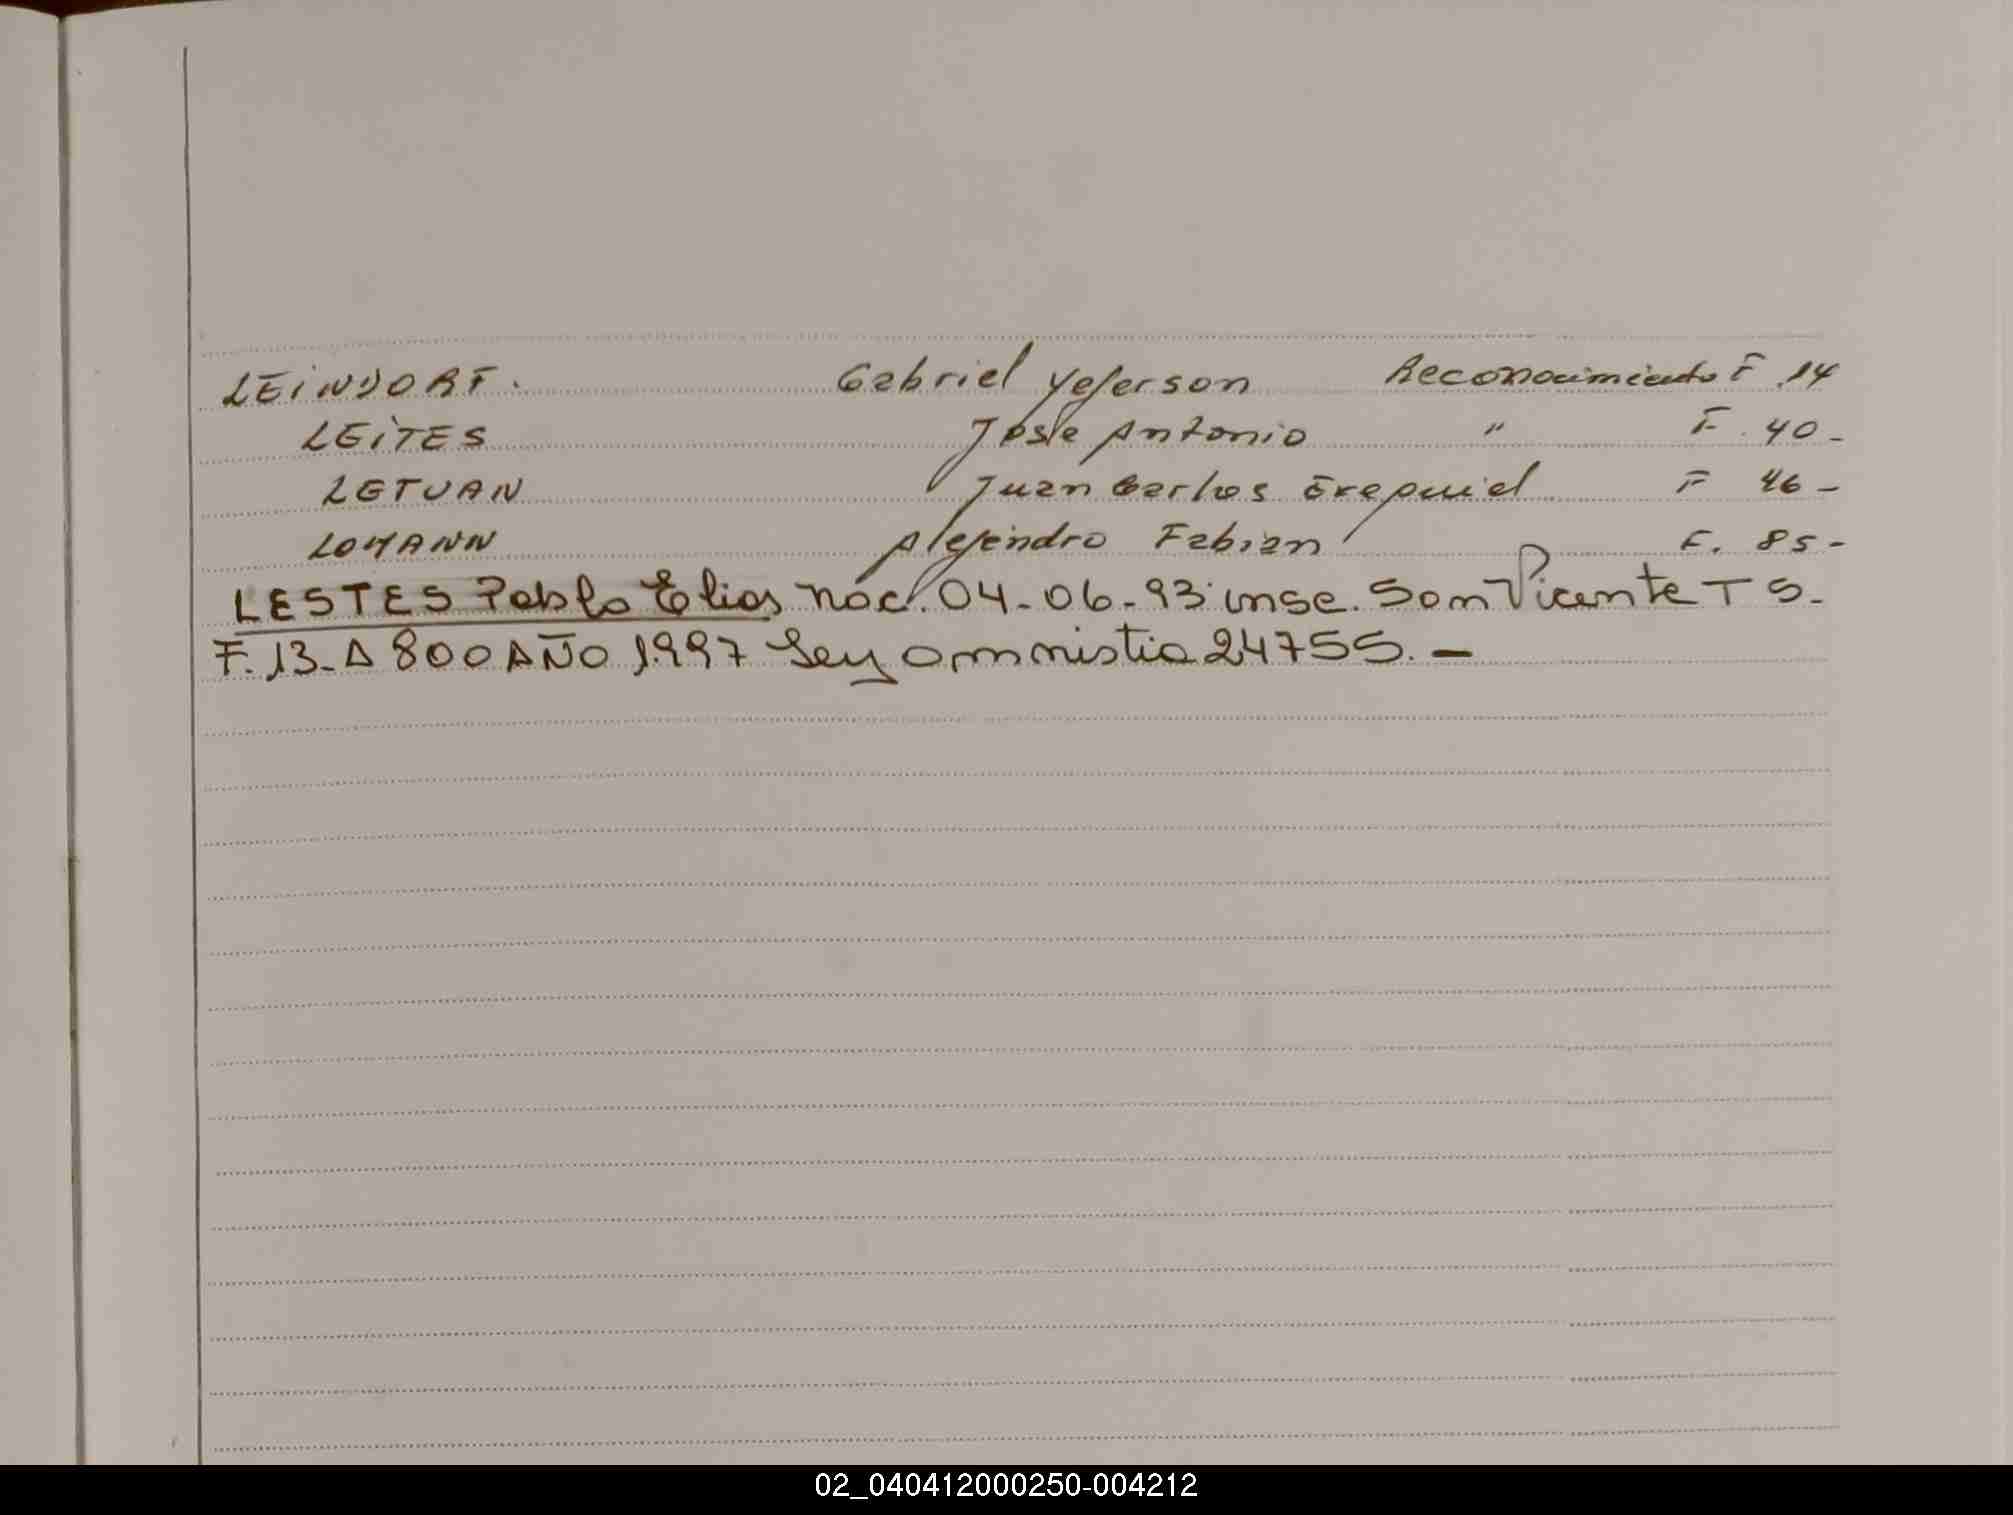 LEINDORF. Gabriel Yeferson Reconocimiento F. 14
LEITES Jose Antonio " F. 40-
LETUAN Juan Carlos Exequiel F 46-
LOHANN Alejandro Fabian F. 85-
LESTES Pablo Elias nac. 04-06-93 insc. San Vicente T S.
F. 13- A 800 AÑO 1997 Ley amnistia 24755. -
02_040412000250-004212